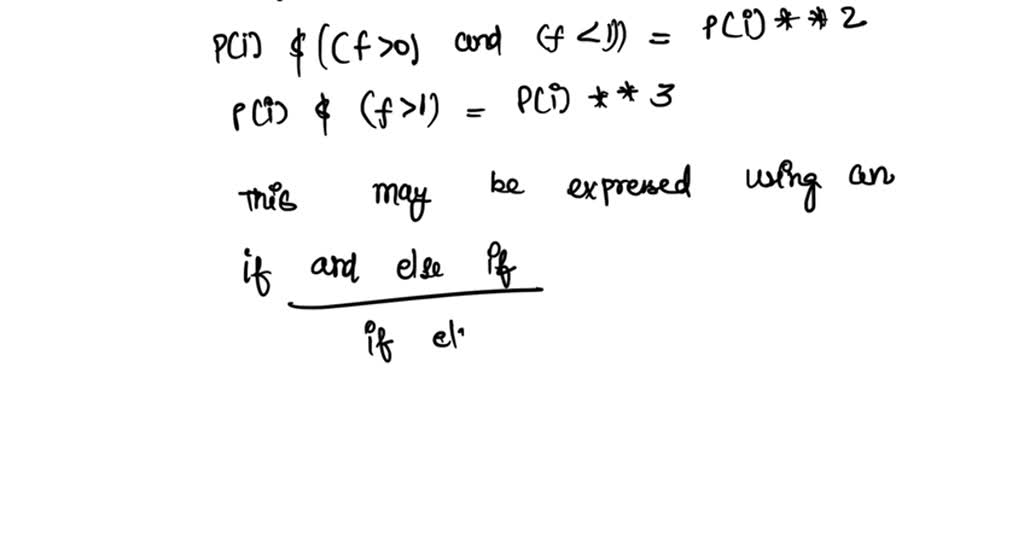 P(i) $ ((f>0) and (f<1)) = P(i) ** 2
P(i) $ (f>1) = P(i) ** 3
This may be expressed using an
if and else if
if el